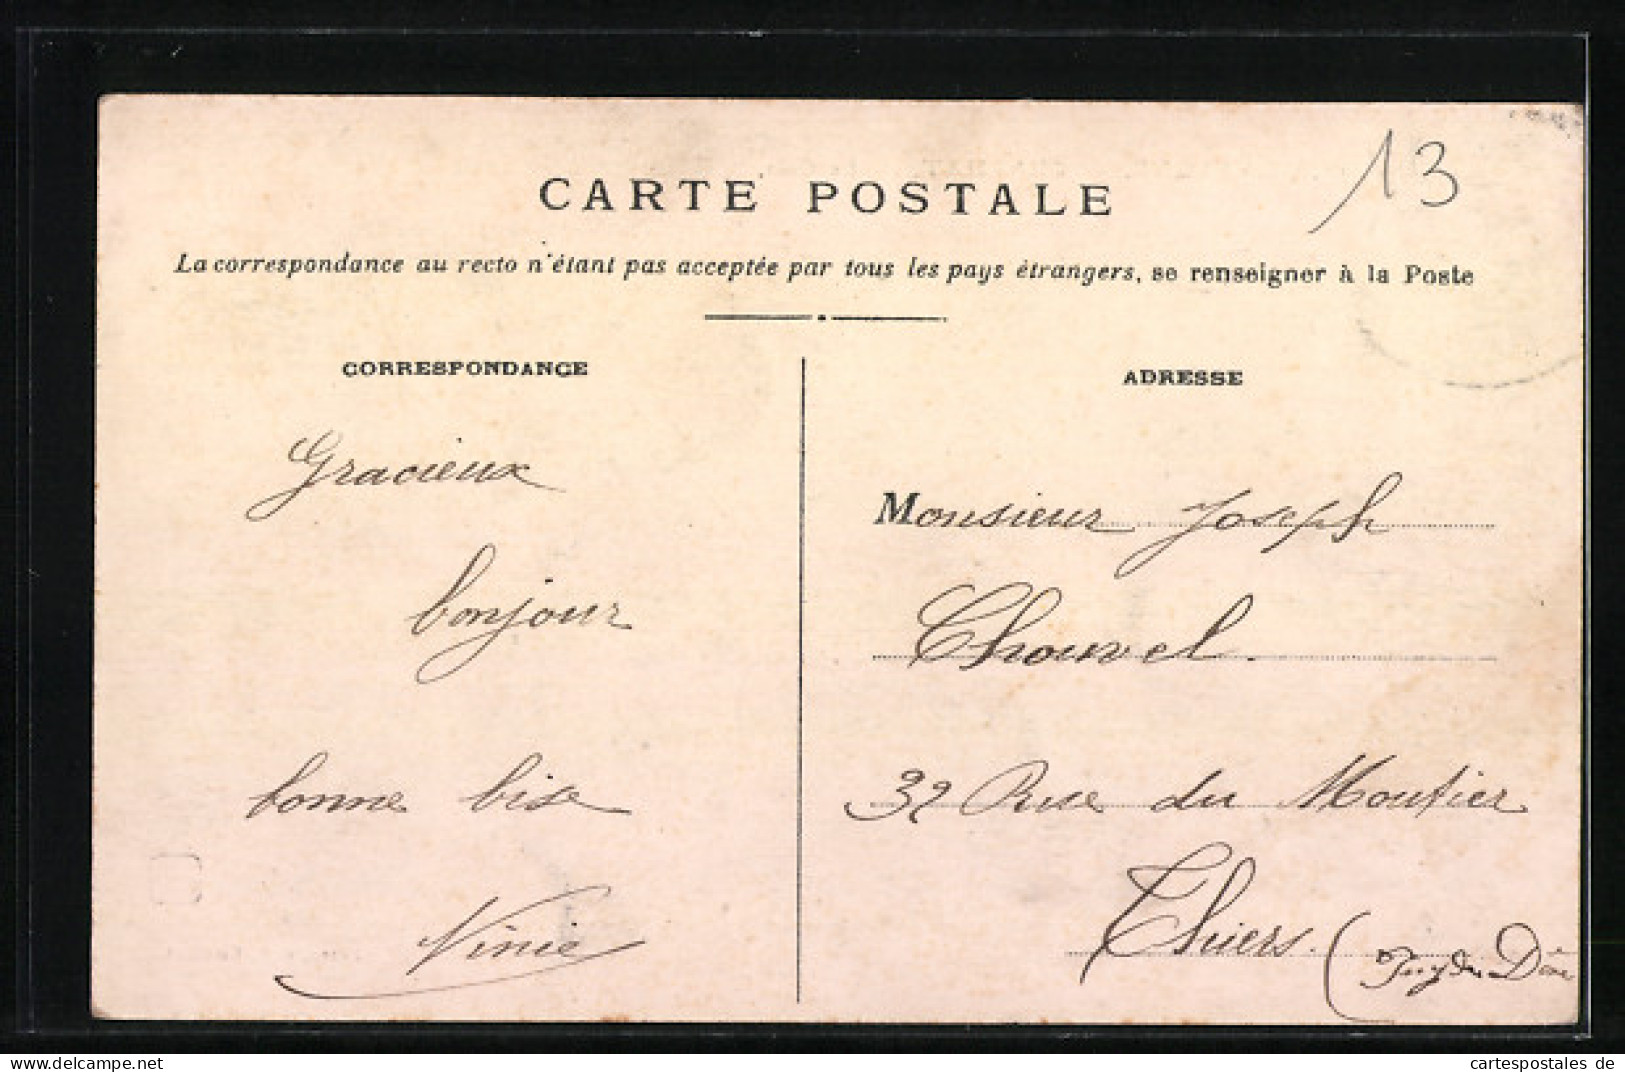 13
CARTE POSTALE
La correspondance au recto n'étant pas acceptée par tous les pays étrangers, se renseigner à la Poste
CORRESPONDANCE
Gracieux
bonjour
bonne bise
Ninie
ADRESSE
Monsieur Joseph
Chouvel.
32 Rue du Moutier
Thiers. (Puy du Dôme
delcampe.net
cartespostales de